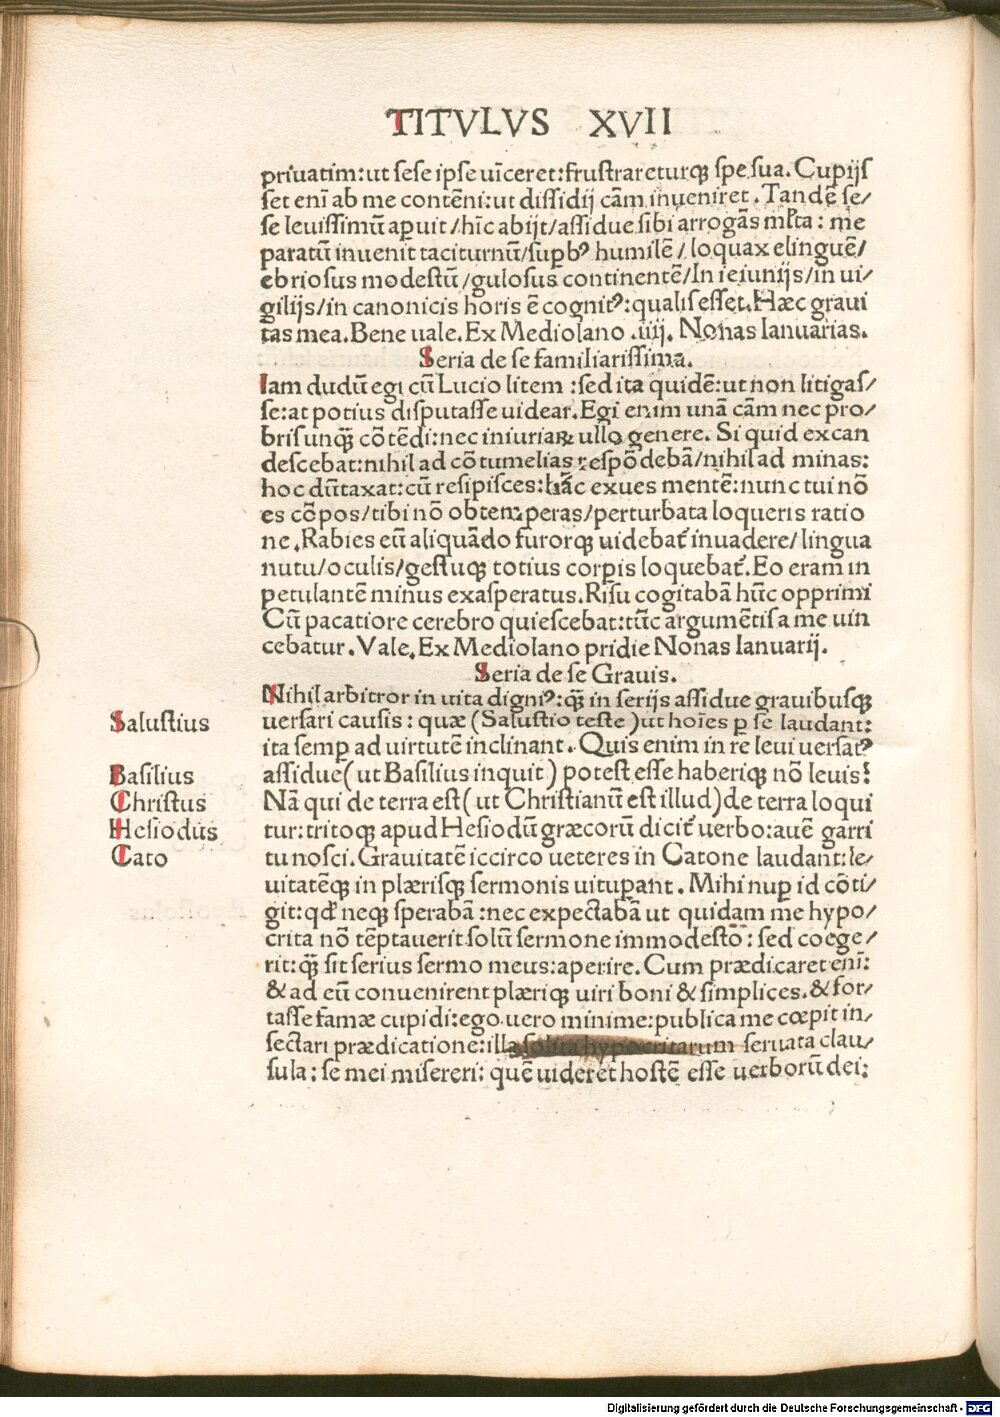 TITVLVS XVII
priuatim:ut sese ipse uīceret:frustrareturqꝫ spe sua. Cupijs
set enī ab me contēni:ut dissidij cām inueniret. Tandē se/
se leuissimū aꝑuit/hīc abijt/assidue sibi arrogās mĺta: me
paratū inuenit taciturnū/suꝑbꝰ humilē/loquax elinguē/
ebriosus modestū/gulosus continentē/In ieiunijs/in ui/
gilijs/in canonicis horis ē cognitꝰ:qualis esset. Hæc graui
tas mea. Bene uale. Ex Mediolano .iiij. Nonas Ianuarias.
Seria de se familiarissima.
Iam dudū egi cū Lucio litem :sed ita quidē:ut non litigas/
se:at potius disputasse uidear. Egi enim unā cām nec pro/
bris unqꝫ̄ cōtēdi:nec iniuriaꝝ ullo genere. Si quid excan
descebat:nihil ad cōtumelias respōdebā/nihil ad minas:
hoc dūtaxat:cū resipisces:hāc exues mentē:nunc tui nō
es cōpos/tibi nō obtemperas/perturbata loqueris ratio
ne. Rabies eū aliquādo furorqꝫ uidebat̄ inuadere/lingua
nutu/oculis/gestuqꝫ totius corꝑis loquebat̄. Eo eram in
petulantē minus exasperatus. Risu cogitabā hūc opprimi
Cū pacatiore cerebro quiescebat:tūc argumētis a me uin
cebatur. Vale. Ex Mediolano pridie Nonas Ianuarij.
Seria de se Grauis.
Nihil arbitror in uita digniꝰ:qꝫ̄ in serijs assidue grauibusqꝫ
Salustius
uersari causis: quæ (Salustio teste) ut hoīes ꝑ se laudant:
ita semꝑ ad uirtutē inclinant. Quis enim in re leui uersatꝰ
Basilius
assidue (ut Basilius inquit) potest esse haberiqꝫ nō leuis?
Christus
Nā qui de terra est (ut Christianū est illud) de terra loqui
Hesiodus
tur:tritoqꝫ apud Hesiodū græcorū dicit̄ uerbo:auē garri
Cato
tu nosci. Grauitatē iccirco ueteres in Catone laudant:le/
uitatēqꝫ in plærisqꝫ sermonis uituꝑant. Mihi nuꝑ id cōti/
git:qđ neqꝫ sperabā:nec expectabā ut quidam me hypo/
crita nō tēptauerit solū sermone immodesto: sed coege/
rit:qꝫ̄ sit serius sermo meus:aperire. Cum prædicaret enī:
& ad eū conuenirent plæriqꝫ uiri boni & simplices. & for/
tasse famæ cupidi:ego uero minime:publica me cœpit in/
sectari prædicatione:illa solita hypocritarum seruata clau/
sula: se mei misereri: quē uideret hostē esse uerborū dei:
Digitalisierung gefördert durch die Deutsche Forschungsgemeinschaft - DFG